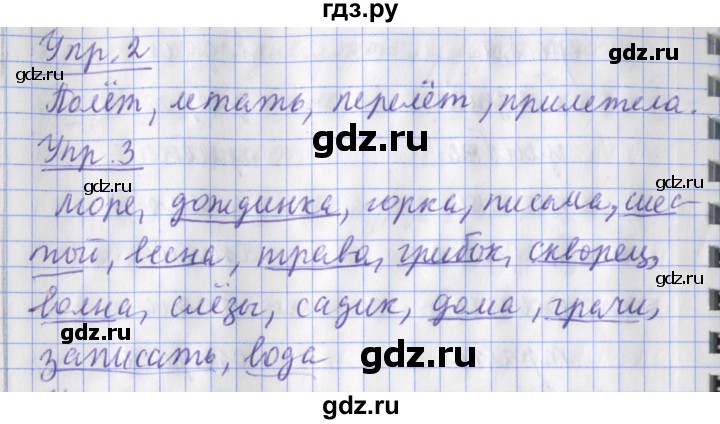 гдз.ру
Упр. 2
Полёт, летать, перелёт, прилетела.
Упр. 3
Море, дождинка, горка, письма, шес-
той, весна, трава, грибок, скворец,
волна, слёзы, садик, дома, грачи,
записать, вода
gdz.ru
gdz.ru
gdz.ru
gdz.ru
gdz.ru
gdz.ru
gdz.ru
gdz.ru
gdz.ru
gdz.ru
gdz.ru
gdz.ru